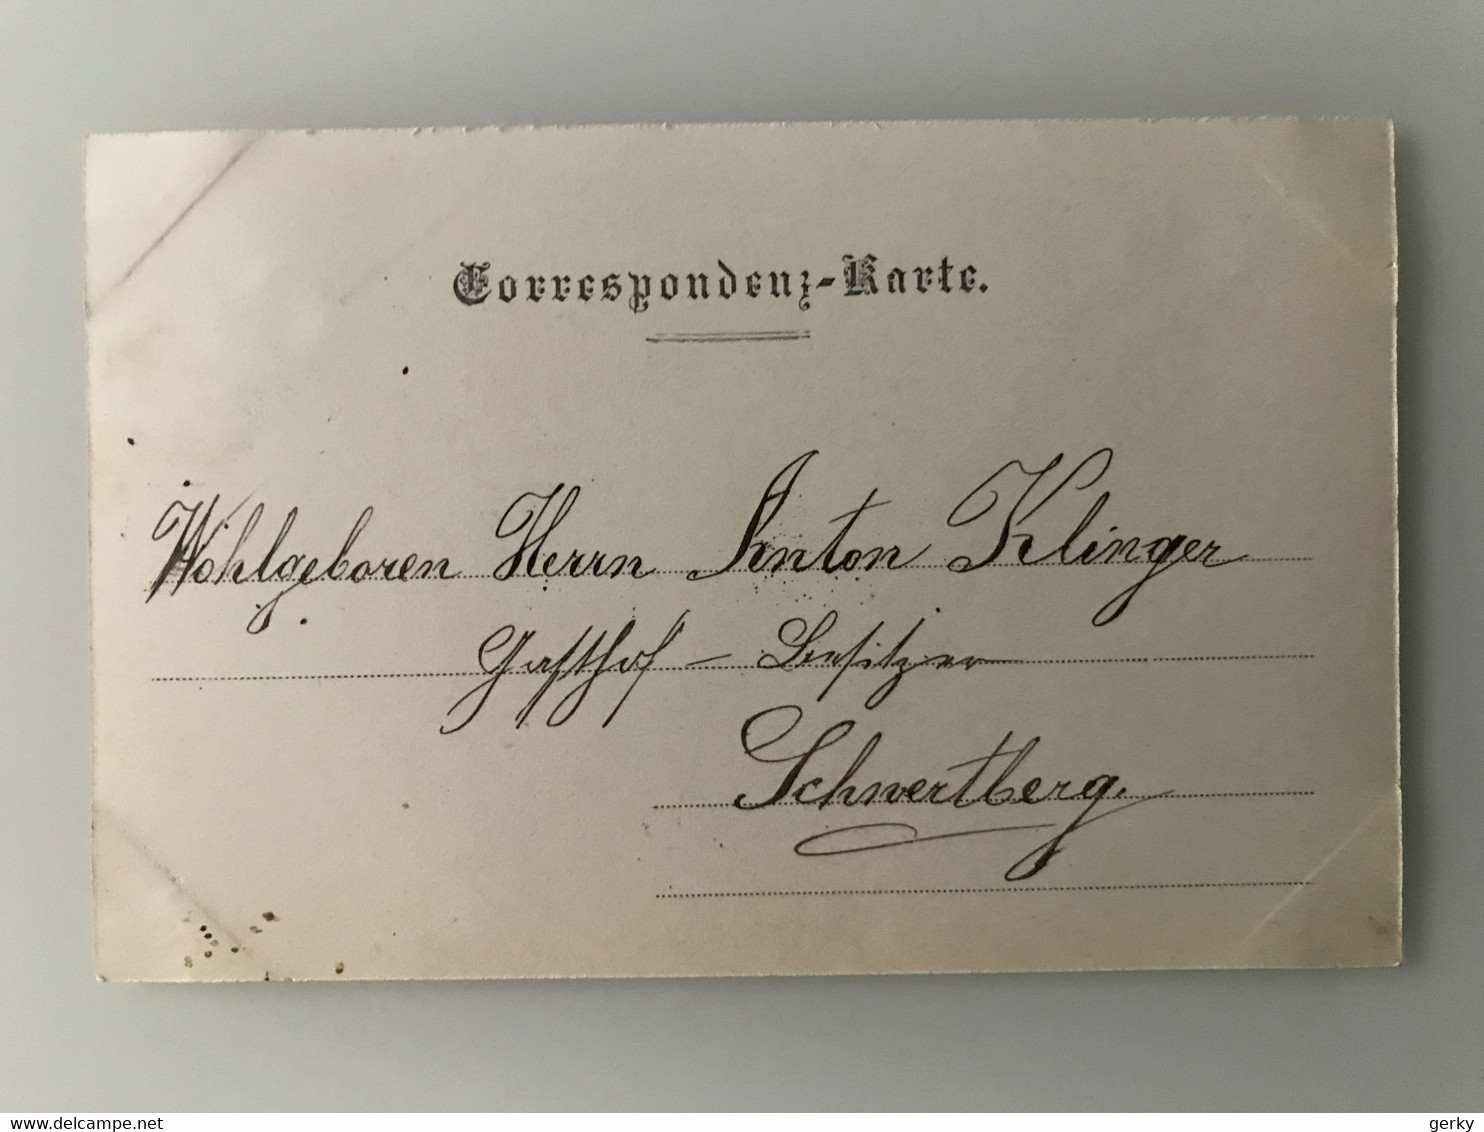 Correspondenz-Karte.
Wohlgeboren Herrn Anton Klinger
Gasthof - Besitzer
Schwertberg.
www.delcampe.net
gerky